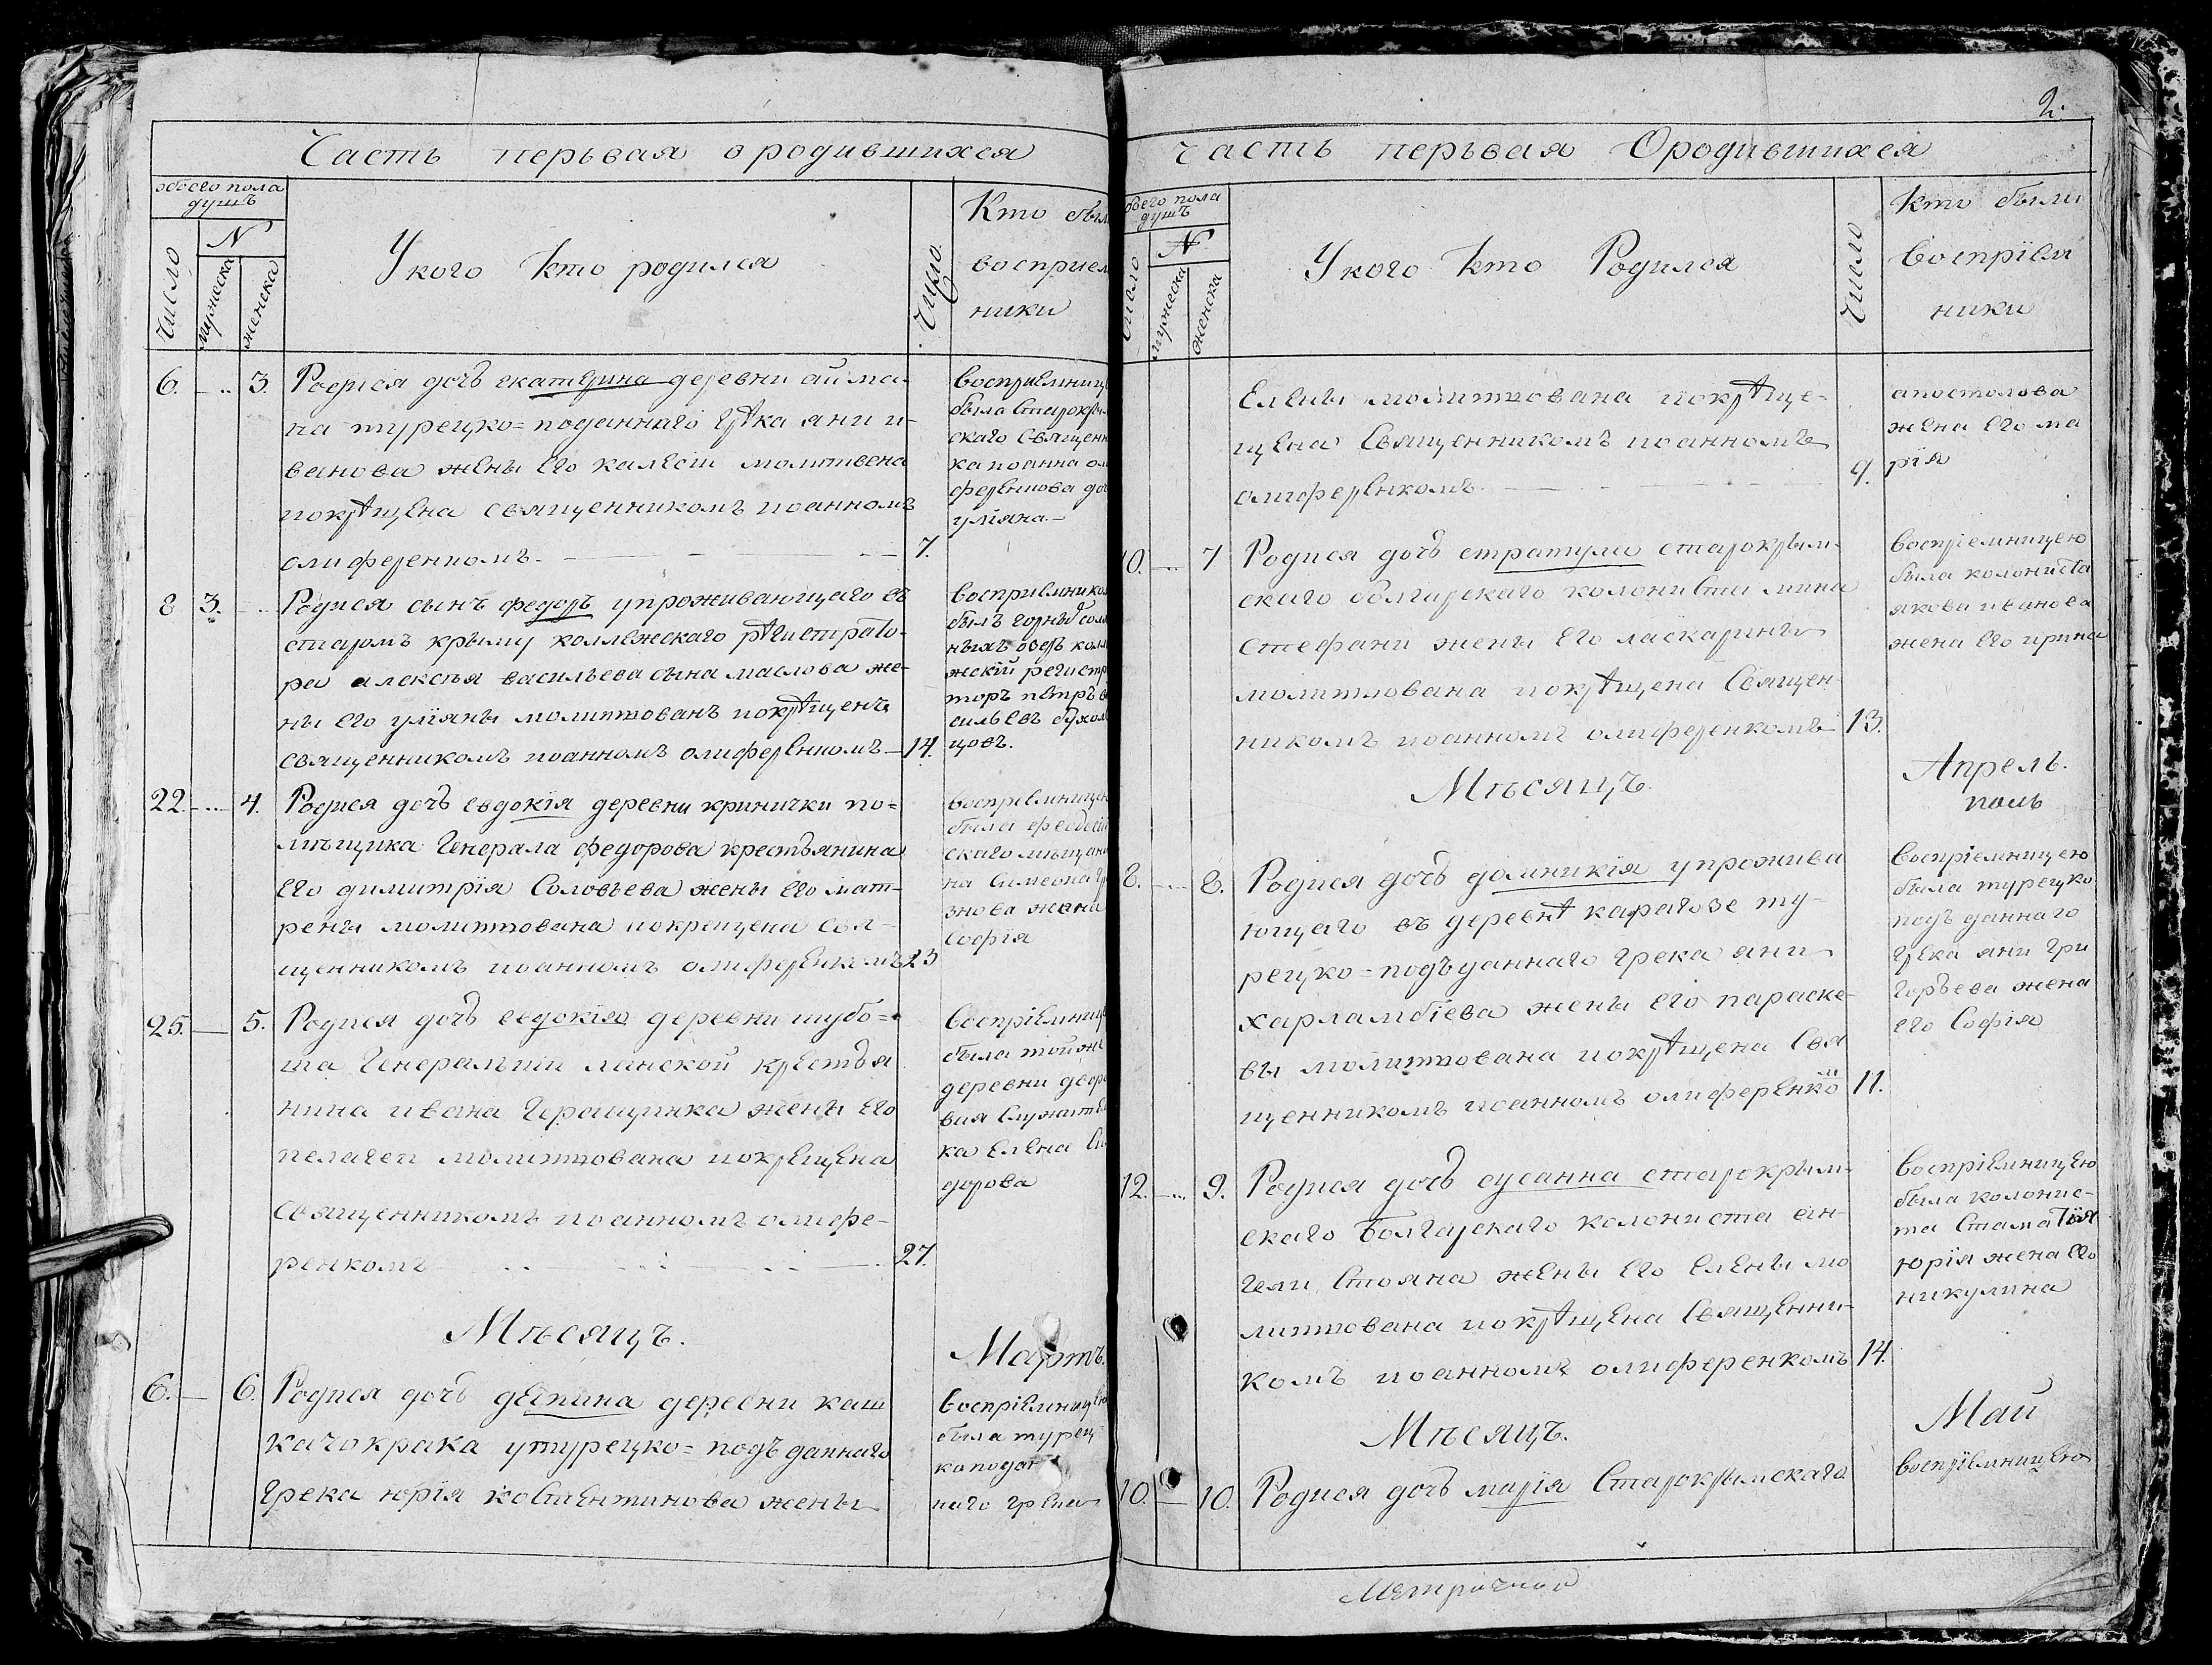 Часть перьвая о родившихся
обоего пола
душъ
Число
N
мужеска
женска
У кого кто родился
Число.
Кто был
восприем
ники
6. 3. Родися дочь екатерина деревни айма-
на турецко=поданнаго грѣка яни и-
ванова жены его молитвена
покрѣщена священникомъ иоанномъ
олиференкомъ. 7.
восприемниц
была Старокры
скаго Священн
ка иоанна ол
ференкова до
улiяна
8 3. Родися сынъ федоръ упроживающаго въ
старомъ крыму коллежскаго рѣгистрато-
ра алексѣя васильева сына маслова же-
ны его улiяны молитвованъ покрѣщенъ
священникомъ иоанномъ олиференкомъ 14.
восприемнико
былъ
ныхъ озеръ кол
жскiй регистр
торъ пѣтръ в
сильевъ
цовъ.
22. 4. Родися дочь евдокiя деревни кринички по=
мѣщика Генерала федорова крестъянина
его димитрiя Соловьева жены его мат-
рены молитвована покрещена свя-
щенникомъ иоанномъ олиференкомъ 23
восприемнице
была феодосiй
скаго мѣщани
на Симеона
знова жена
Софiя
25 5. Родися дочь евдокiя деревни шубо=
ша Генеральши ланской крестъя
нина ивана Геращинка жены его
пелагеи молитвована покрещена
Священникомъ иоанномъ олифе-
ренкомъ 27.
восприемниц
была той же
деревни двор
вая Служите
ка елена Си
дорова
Мѣсяцъ. Мартъ.
6. 6. Родися дочь деспина деревни каш
качокрака у турецко=подъданнаго
Грека юрiя костентинова жены
восприемницею
была турец
коподан
наго грека
2.
Часть перьвая О родившихся
обоего пола
душъ
Число
N
мужеска
женска
У кого кто Родился
Число
Кто были
восприем
ники
Елены молитвована покрѣще-
щена Священникомъ иоанномъ
олиференкомъ. 9.
апостолова
жена его ма
рiя
10. 7 Родися дочь стратула старокрым-
скаго болгарскаго колониста мина
стефани жены его ласкарины
молитвована покрѣщена Священ-
никомъ иоанномъ олиференкомъ 13.
восприемницею
была колониста
якова иванова
жена его ирина
Мѣсяцъ. Апрель.
8. 8. Родися дочь домникiя упрожива
ющаго въ деревнѣ карагозе ту-
рецко=подъданнаго грека яни
харламбiева жены его параске-
вы молитвована покрѣщена Свя
щенникомъ иоанномъ олиференком 11.
восприемницею
была турецко
подъданнаго
грека яни гри
горъева жена
его Софiя
12. 9. Родися дочь сусанна старокрым-
скаго Болгарскаго колониста ан-
гели Стояна жены его елены мо
литвована покрѣщена Священни-
комъ иоанномъ олиференкомъ 14.
восприемницею
была колонис-
та Стаматiя
юрiя жена его
никулина
Мѣсяцъ. Май
10. 10. Родися дочь марiя Старокрымскаго
восприемницею